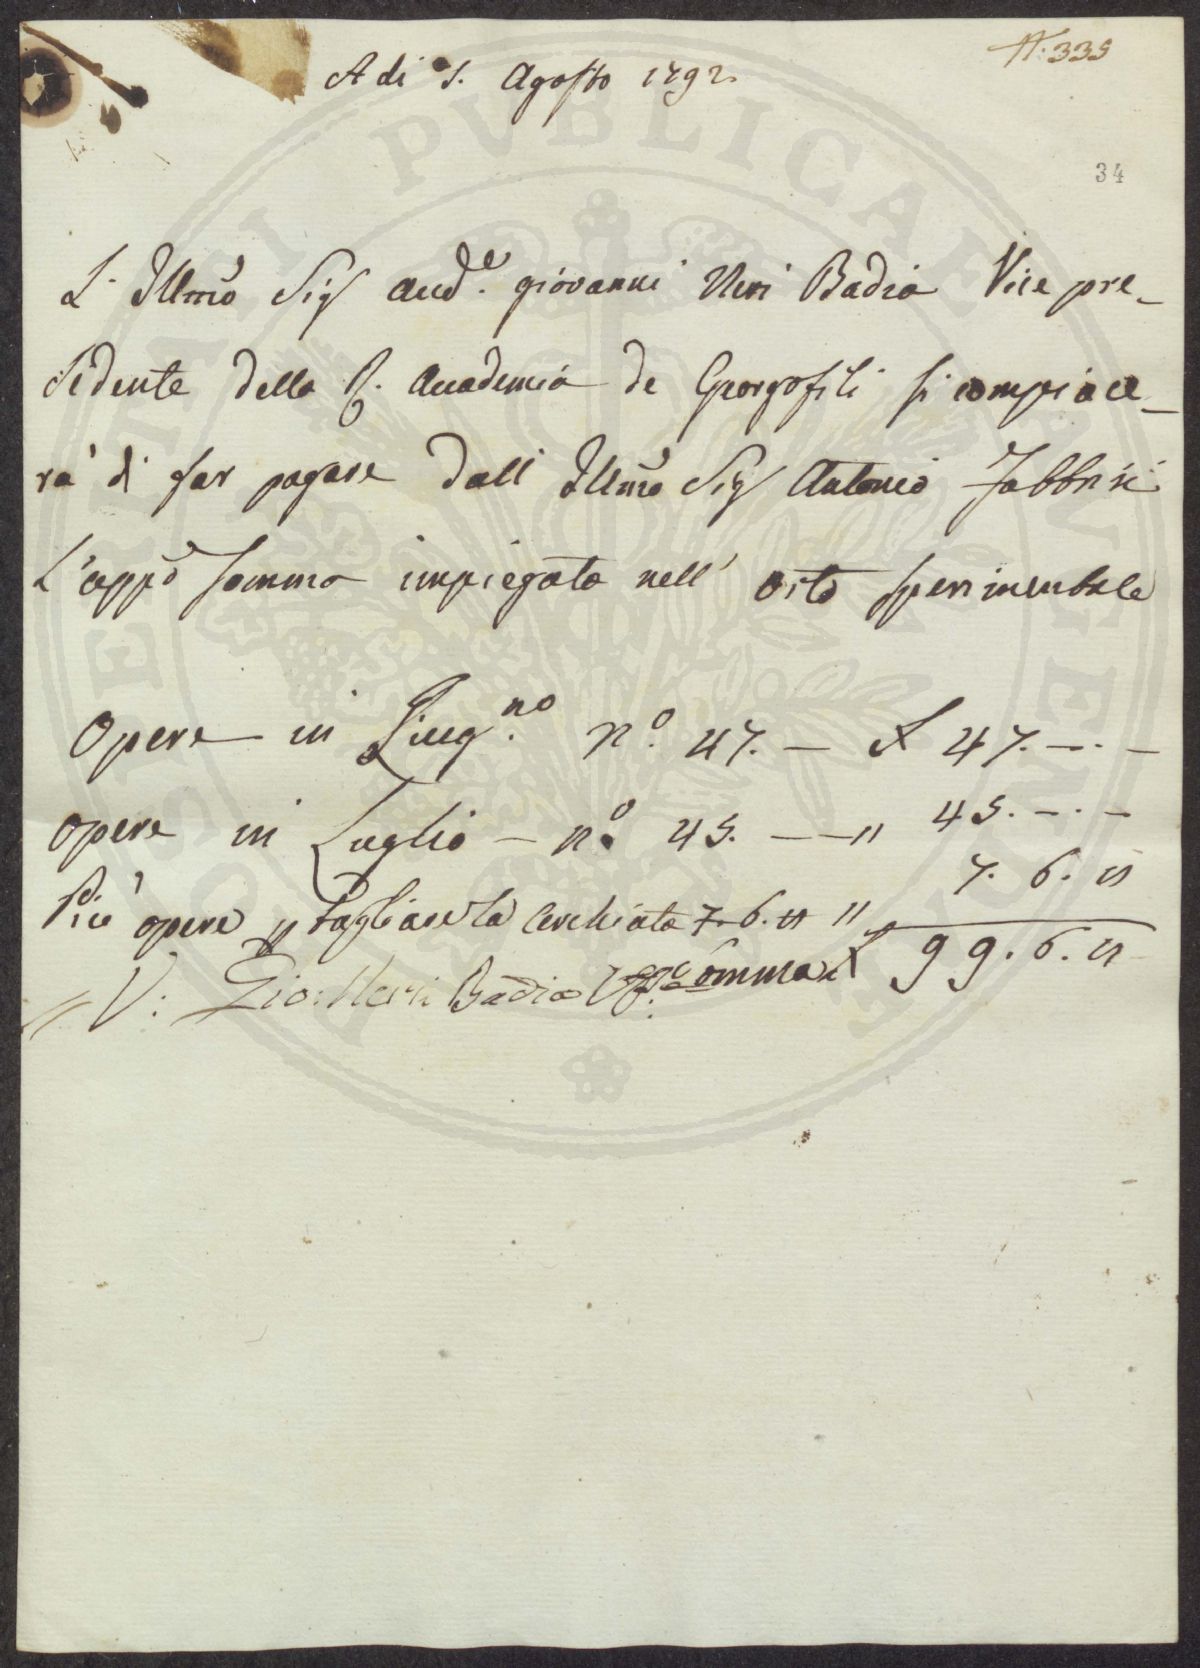 N: 335
A di 5. Agosto 1792.
34
L' Illmo Sig Aud.e giovanni Neri Badia Vice pre-
sidente della R. Accademia de Georgofili si compiace-
rà di far pagare dall' Illmo Sig Antonio Fabbrini
L'appo somma impiegata nell' orto sperimentale
Opere in Giug.no n.o 47. — £ 47. — . —
Opere in Luglio — n.o 45. — — " 45. — . —
Più opere p tagliare la Cerchiata 7. 6. " " 7. 6. "
V: Gio: Neri Badia V. P. Somma £ 99. 6. "